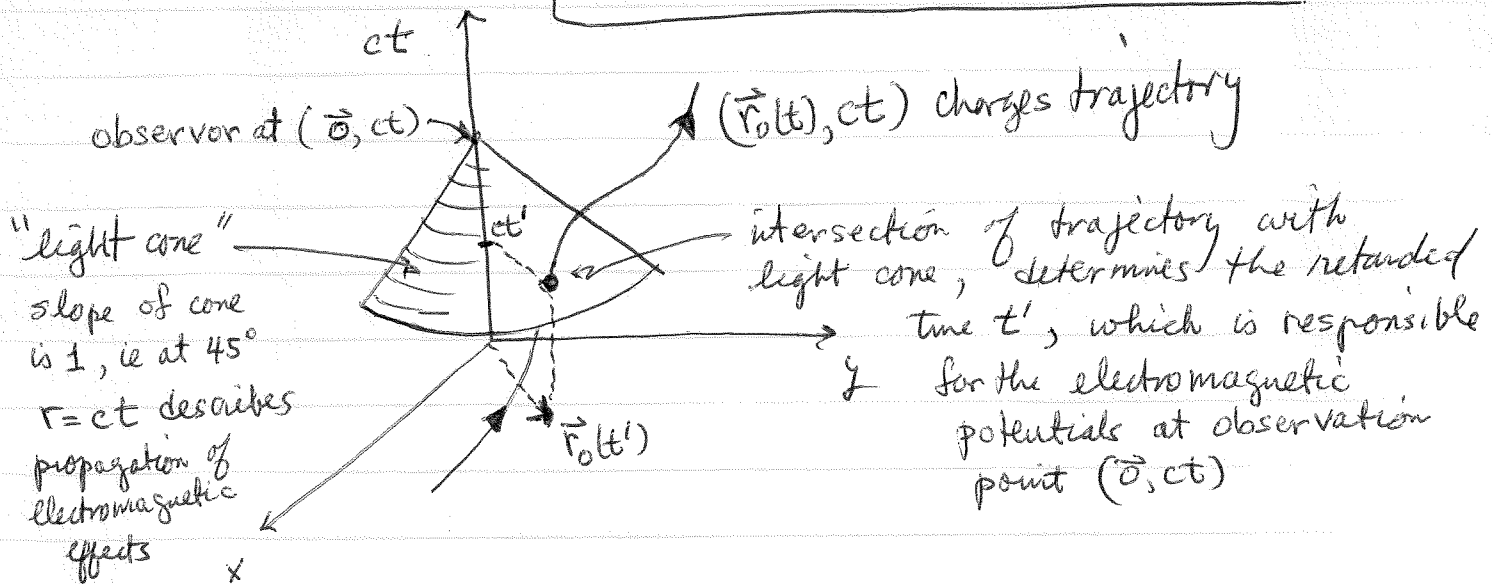 ct
(r⃗₀(t), ct) charges trajectory
observor at (o⃗, ct)
"light cone"
slope of cone
is 1, ie at 45°
r = ct describes
propagation of
electromagnetic
effects
ct'
intersection of trajectory with
light cone, determines the retarded
time t', which is responsible
for the electromagnetic
potentials at observation
point (o⃗, ct)
y
r⃗₀(t')
x